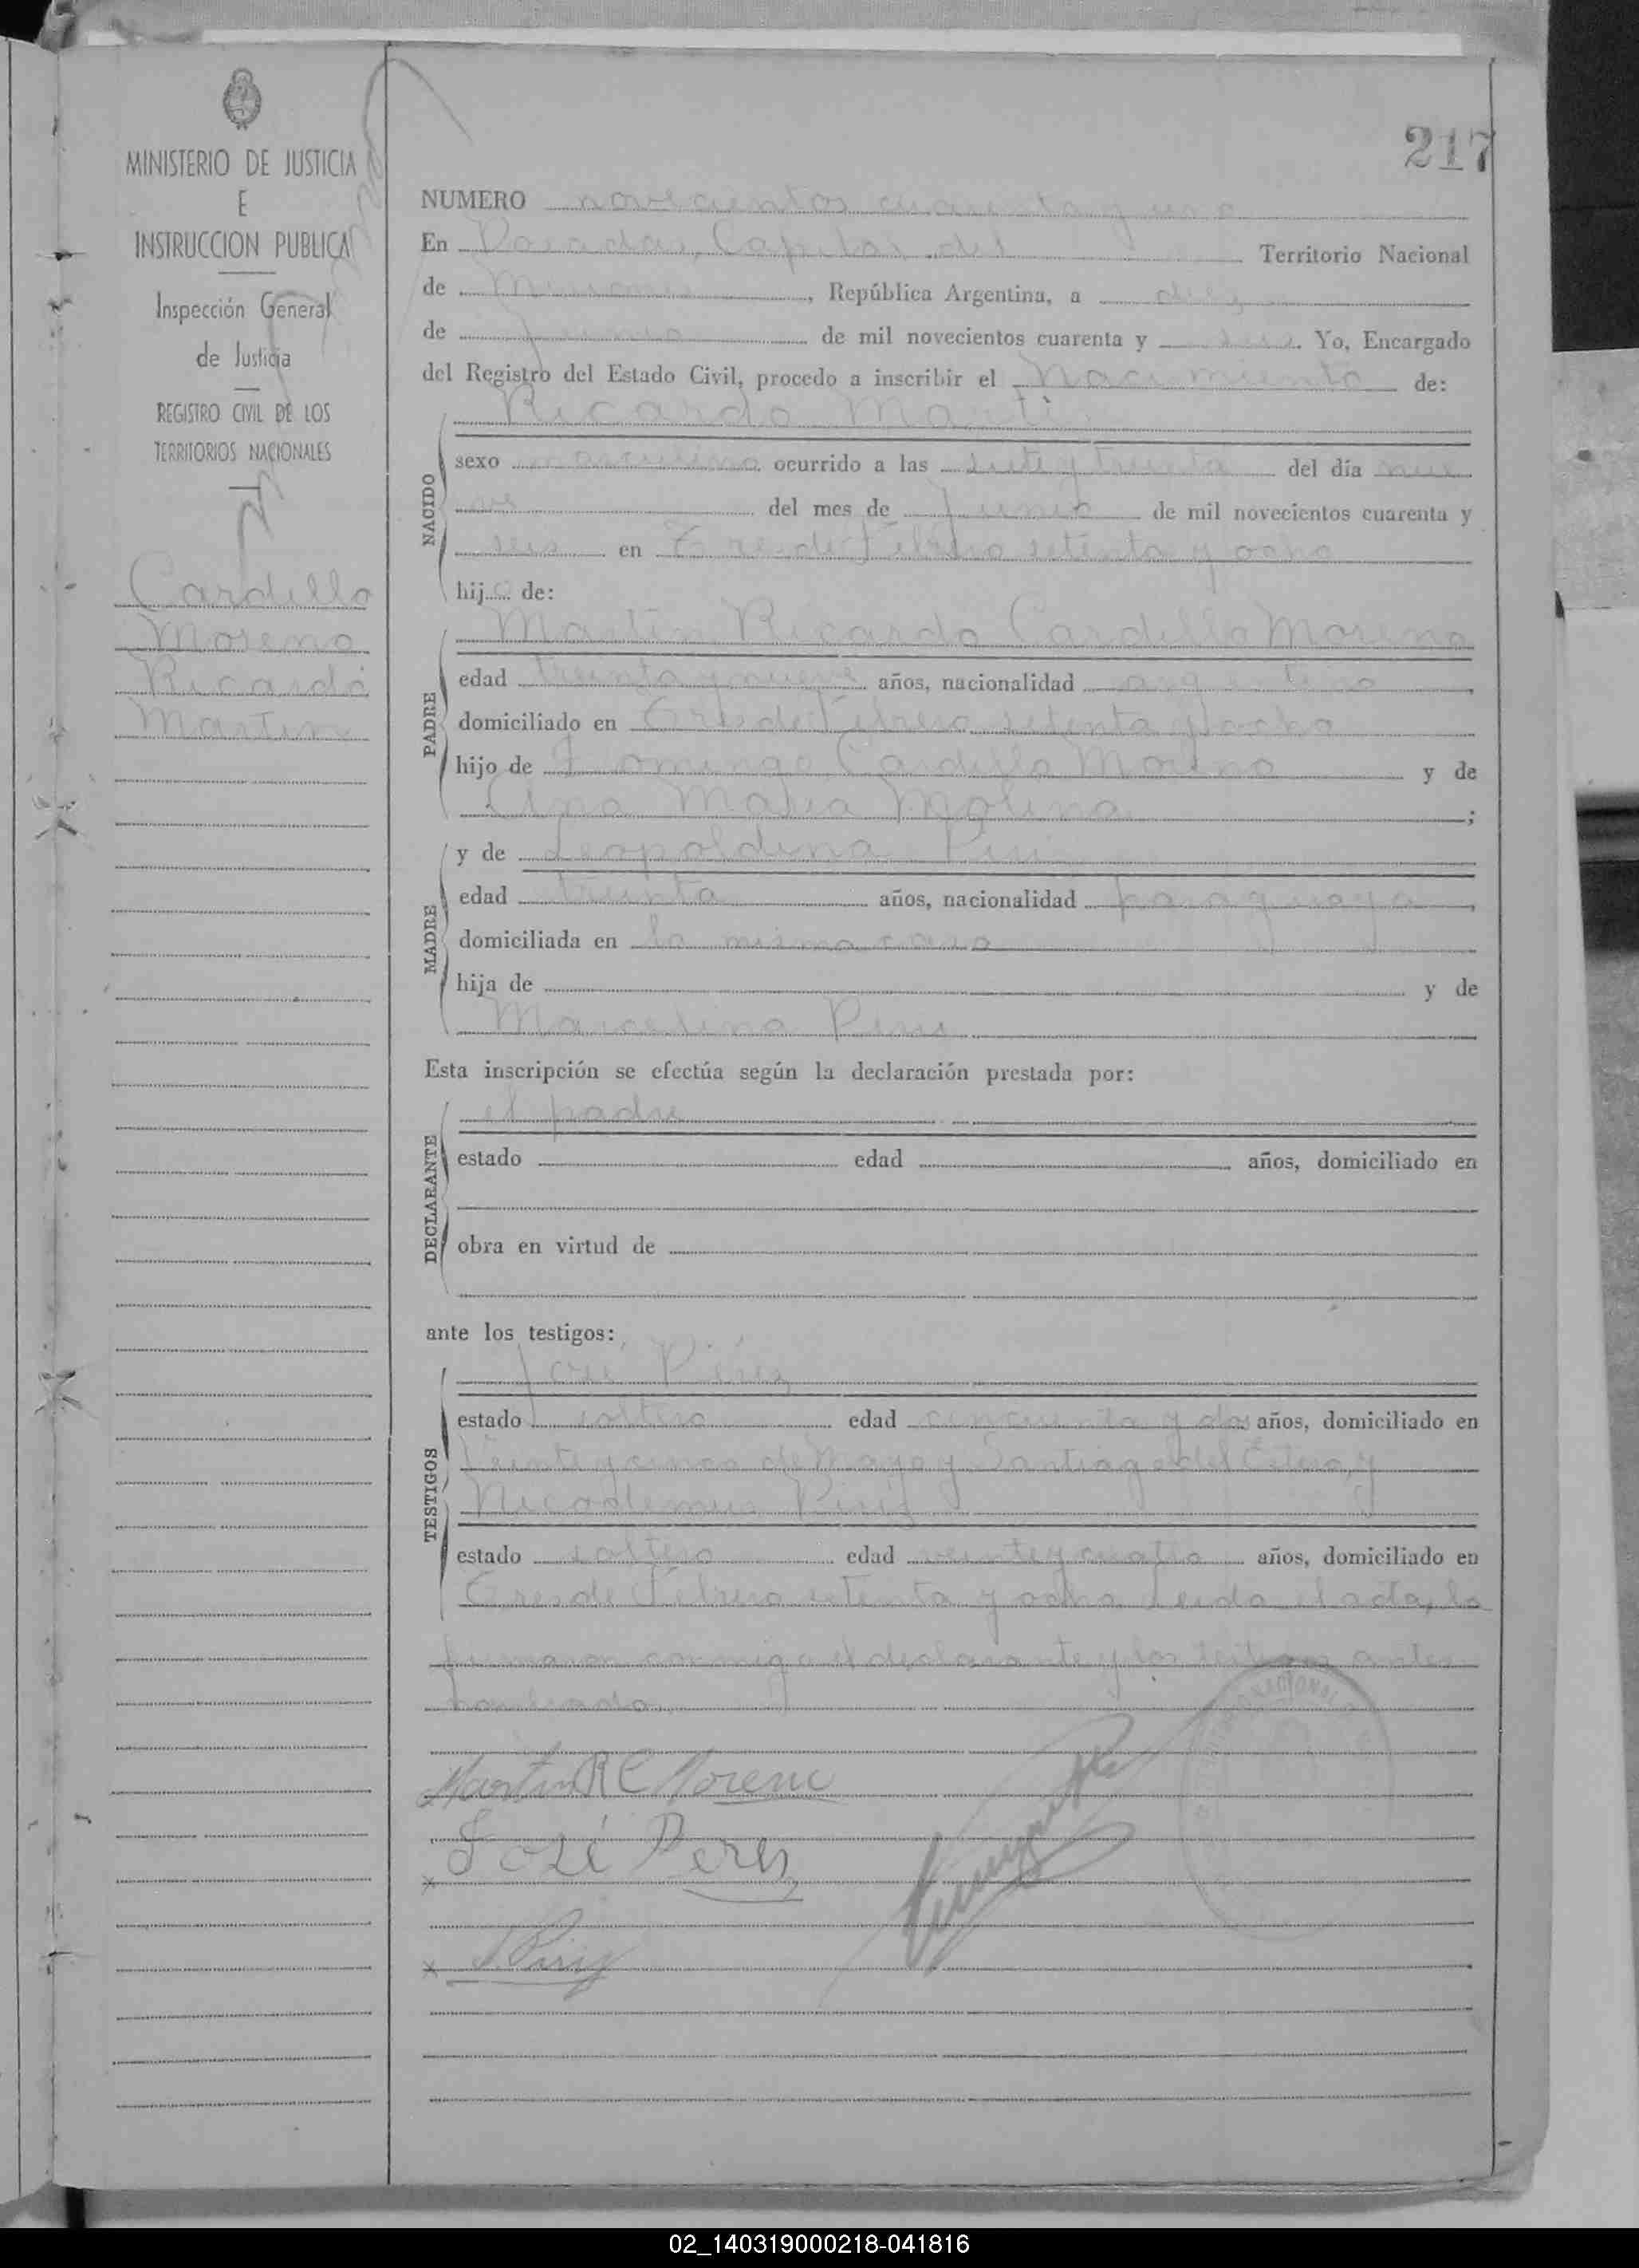 217
MINISTERIO DE JUSTICIA
E
INSTRUCCION PUBLICA
Inspección General
de Justicia
REGISTRO CIVIL DE LOS
TERRITORIOS NACIONALES
Cardillo
Moreno
Ricardo
Martin
NUMERO novecientos cuarenta y uno
En Posadas, Capital del Territorio Nacional
de Misiones, República Argentina, a diez
de junio de mil novecientos cuarenta y seis. Yo, Encargado
del Registro del Estado Civil, procedo a inscribir el Nacimiento de:
Ricardo Martin
NACIDO
sexo masculino ocurrido a las siete y treinta del día nue
ve del mes de junio de mil novecientos cuarenta y
seis en Tres de Febrero setenta y ocho
hijo de:
PADRE
Martin Ricardo Cardillo Moreno
edad treinta y nueve años, nacionalidad argentino,
domiciliado en Tres de Febrero setenta y ocho
hijo de Domingo Cardillo Moreno y de
Ana Maria Molina;
MADRE
y de Leopoldina Piris
edad treinta años, nacionalidad paraguaya,
domiciliada en la misma casa
hija de y de
Marcelina Piris
Esta inscripción se efectúa según la declaración prestada por:
DECLARANTE
el padre
estado edad años, domiciliado en
obra en virtud de
ante los testigos:
TESTIGOS
José Pérez
estado soltero edad cincuenta y dos años, domiciliado en
Veinte y cinco de Mayo y Santiago del Estero, y
Nicodemus Piris
estado soltero edad veinte y cuatro años, domiciliado en
Tres de Febrero setenta y ocho. Leida el acta, la
firmaron conmigo el declarante y los testigos antes
nombrados.
Martin R C Moreno
José Perez
x Piris
02_140319000218-041816